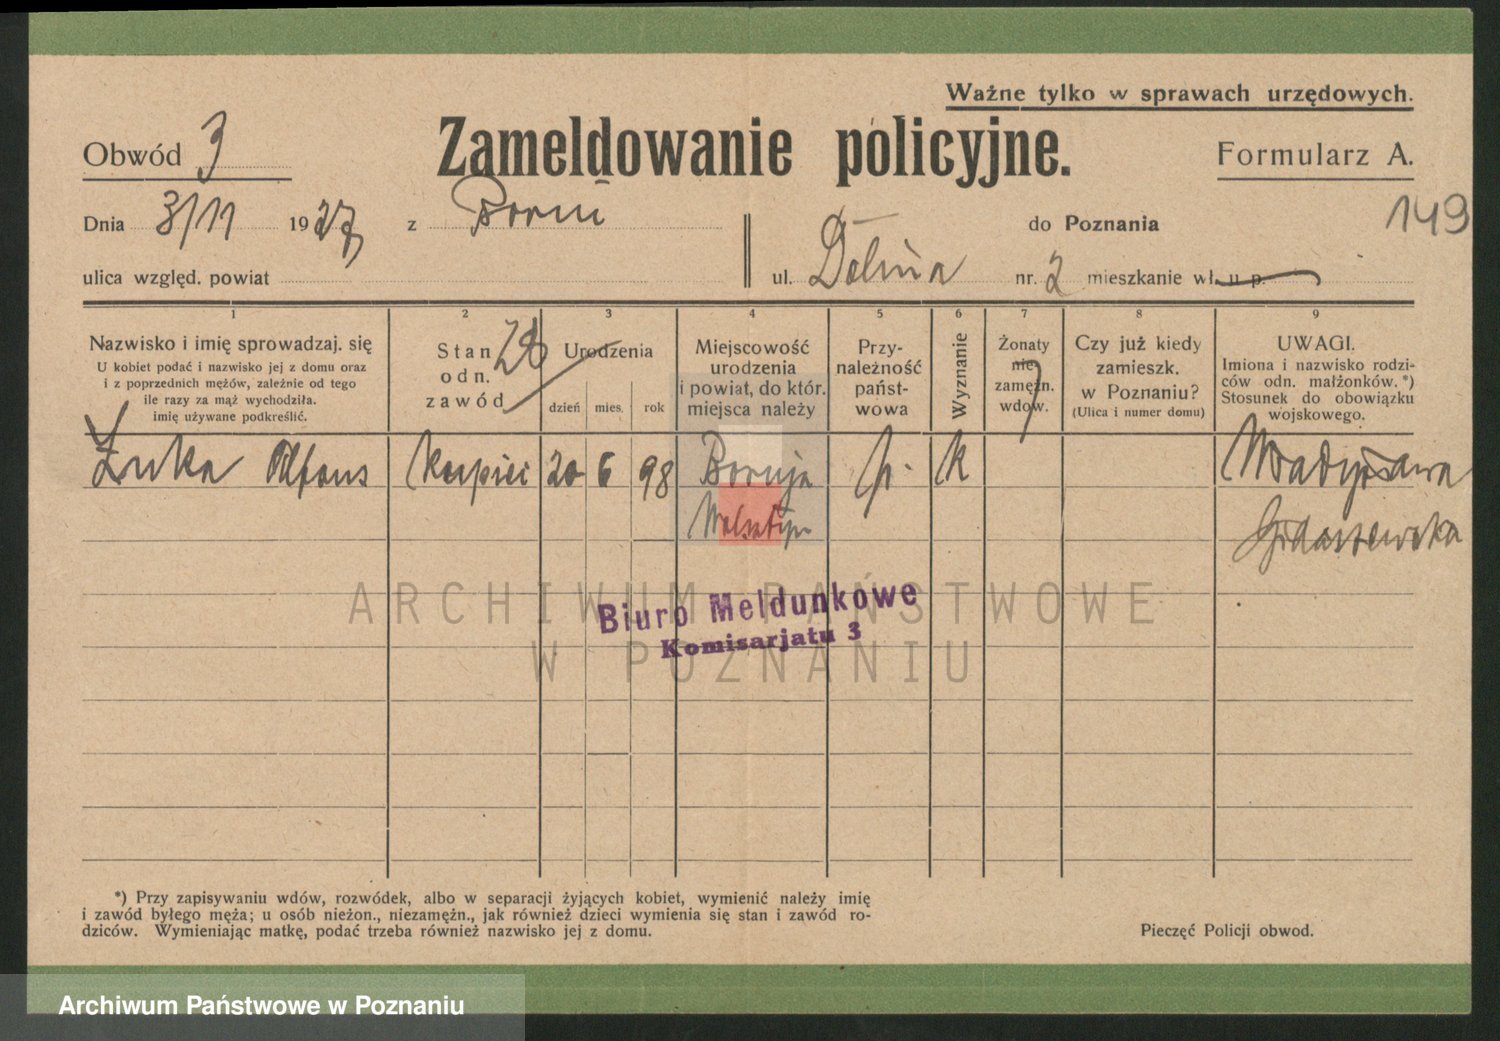 Ważne tylko w sprawach urzędowych.
Obwód 3
Zameldowanie policyjne.
Formularz A.
Dnia 3/11 1927 z
do Poznania
149
ulica względ. powiat
ul. Dolina nr. 2 mieszkanie wł. u p.
1 2 3 4 5 6 7 8 9
Nazwisko i imię sprowadzaj. się
U kobiet podać i nazwisko jej z domu oraz
i z poprzednich mężów, zależnie od tego
ile razy za mąż wychodziła.
imię używane podkreślić.
Stan
odn.
zawód
Urodzenia
dzień mies. rok
Miejscowość
urodzenia
i powiat, do któr.
miejsca należy
Przy-
należność
państ-
wowa
Wyznanie
Żonaty
nie
zamężn.
wdow.
Czy już kiedy
zamieszk.
w Poznaniu?
(Ulica i numer domu)
UWAGI.
Imiona i nazwisko rodzi-
ców odn. małżonków.*)
Stosunek do obowiązku
wojskowego.
Żuka Alfons kupiec 20 6 98 Boruja p. k
Wolsztyn
ARCHIWUM PAŃSTWOWE
W POZNANIU
Biuro Meldunkowe
Komisarjatu 3
*) Przy zapisywaniu wdów, rozwódek, albo w separacji żyjących kobiet, wymienić należy imię
i zawód byłego męża; u osób nieżon., niezamężn., jak również dzieci wymienia się stan i zawód ro-
dziców. Wymieniając matkę, podać trzeba również nazwisko jej z domu.
Pieczęć Policji obwod.
Archiwum Państwowe w Poznaniu